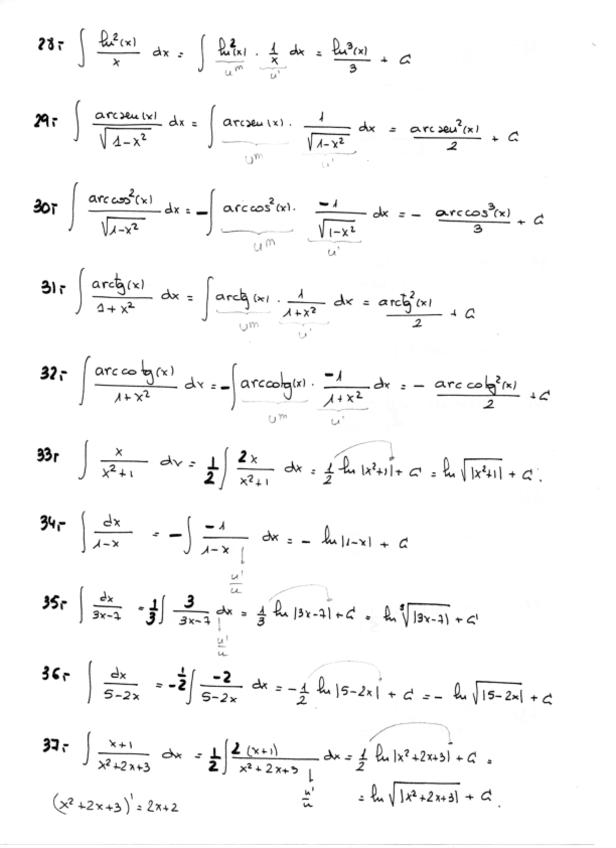 28.- ∫ ln²(x)/x dx = ∫ ln²(x) · 1/x dx = ln³(x)/3 + C
u^m u'
29.- ∫ arcsen(x)/√(1-x²) dx = ∫ arcsen(x) · 1/√(1-x²) dx = arcsen²(x)/2 + C
u^m u'
30.- ∫ arccos²(x)/√(1-x²) dx = -∫ arccos²(x) · -1/√(1-x²) dx = - arccos³(x)/3 + C
u^m u'
31.- ∫ arctg(x)/(1+x²) dx = ∫ arctg(x) · 1/(1+x²) dx = arctg²(x)/2 + C
u^m u'
32.- ∫ arccotg(x)/(1+x²) dx = -∫ arccotg(x) · -1/(1+x²) dx = - arccotg²(x)/2 + C
u^m u'
33.- ∫ x/(x²+1) dx = 1/2 ∫ 2x/(x²+1) dx = 1/2 ln|x²+1| + C = ln √|x²+1| + C.
34.- ∫ dx/(1-x) = -∫ -1/(1-x) dx = - ln|1-x| + C
u'/u
35.- ∫ dx/(3x-7) = 1/3 ∫ 3/(3x-7) dx = 1/3 ln|3x-7| + C = ln ³√|3x-7| + C
u'/u
36.- ∫ dx/(5-2x) = -1/2 ∫ -2/(5-2x) dx = -1/2 ln|5-2x| + C = - ln √|5-2x| + C
37.- ∫ (x+1)/(x²+2x+3) dx = 1/2 ∫ 2(x+1)/(x²+2x+3) dx = 1/2 ln|x²+2x+3| + C =
u'/u = ln √|x²+2x+3| + C.
(x²+2x+3)' = 2x+2